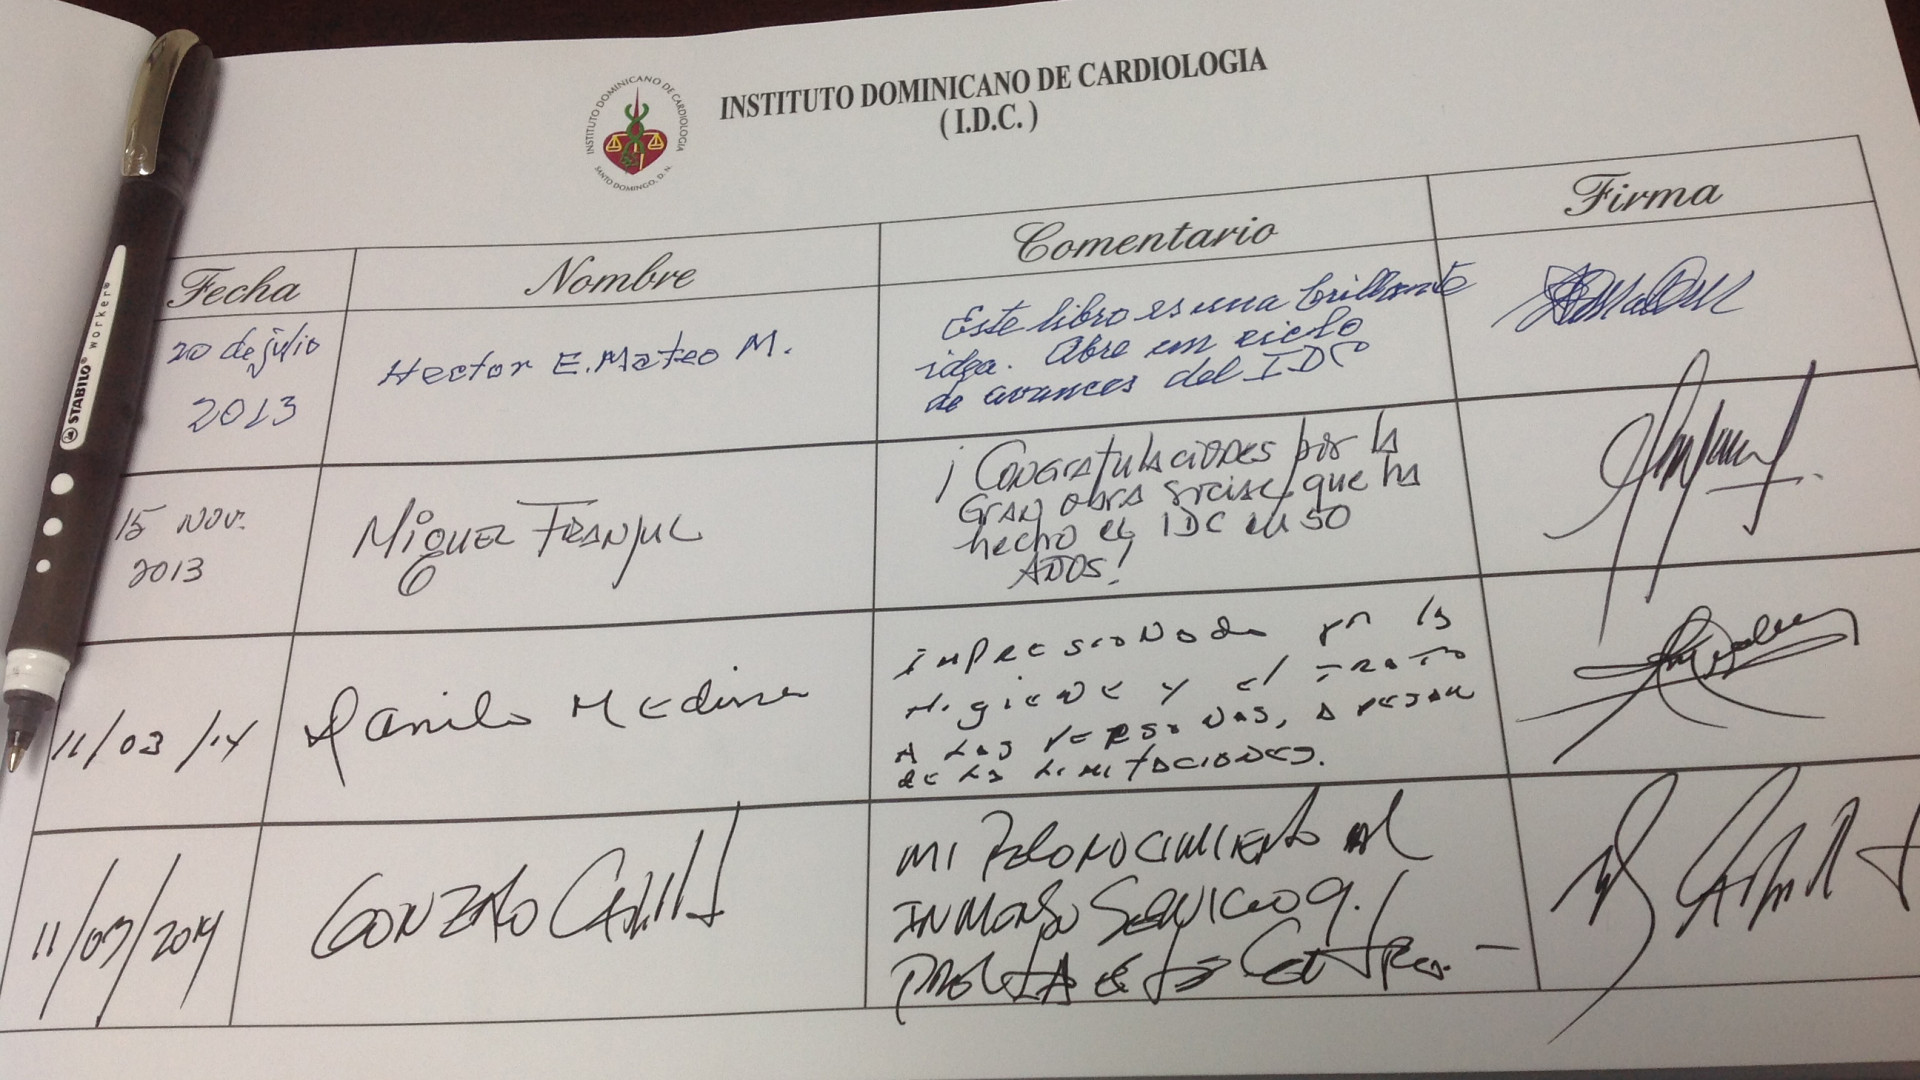 INSTITUTO DOMINICANO DE CARDIOLOGIA
SANTO DOMINGO, D. N.
INSTITUTO DOMINICANO DE CARDIOLOGIA
( I.D.C. )
STABILO® worker®
Fecha Nombre Comentario Firma
20 de julio
2013
Hector E. Mateo M.
Este libro es una brillante
idea. Abre un ciclo
de avances del IDC
15 NOV.
2013
MIGUEL FRANJUL
¡CONGRATULACIONES por la
GRAN obra social que ha
hecho el IDC en 50
AÑOS!
11/03/14
Danilo Medina
impresionado por la
Higiene y el TRATO
A LAS PERSONAS, A PESAR
de las LIMITACIONES.
11/03/2014
GONZALO CASTILLO
MI RECONOCIMIENTO AL
INMENSO SERVICIO q.
PRESTA ESTE CENTRO.